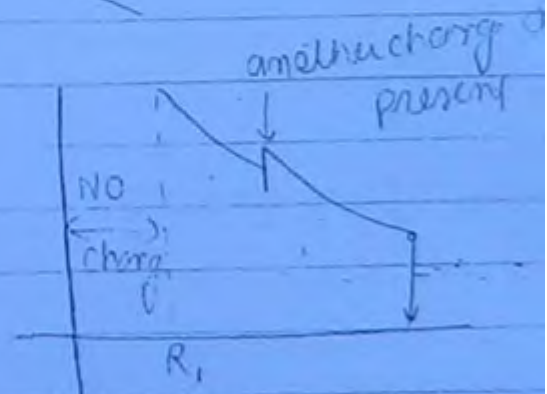 another charg
present
NO
charg
R₁